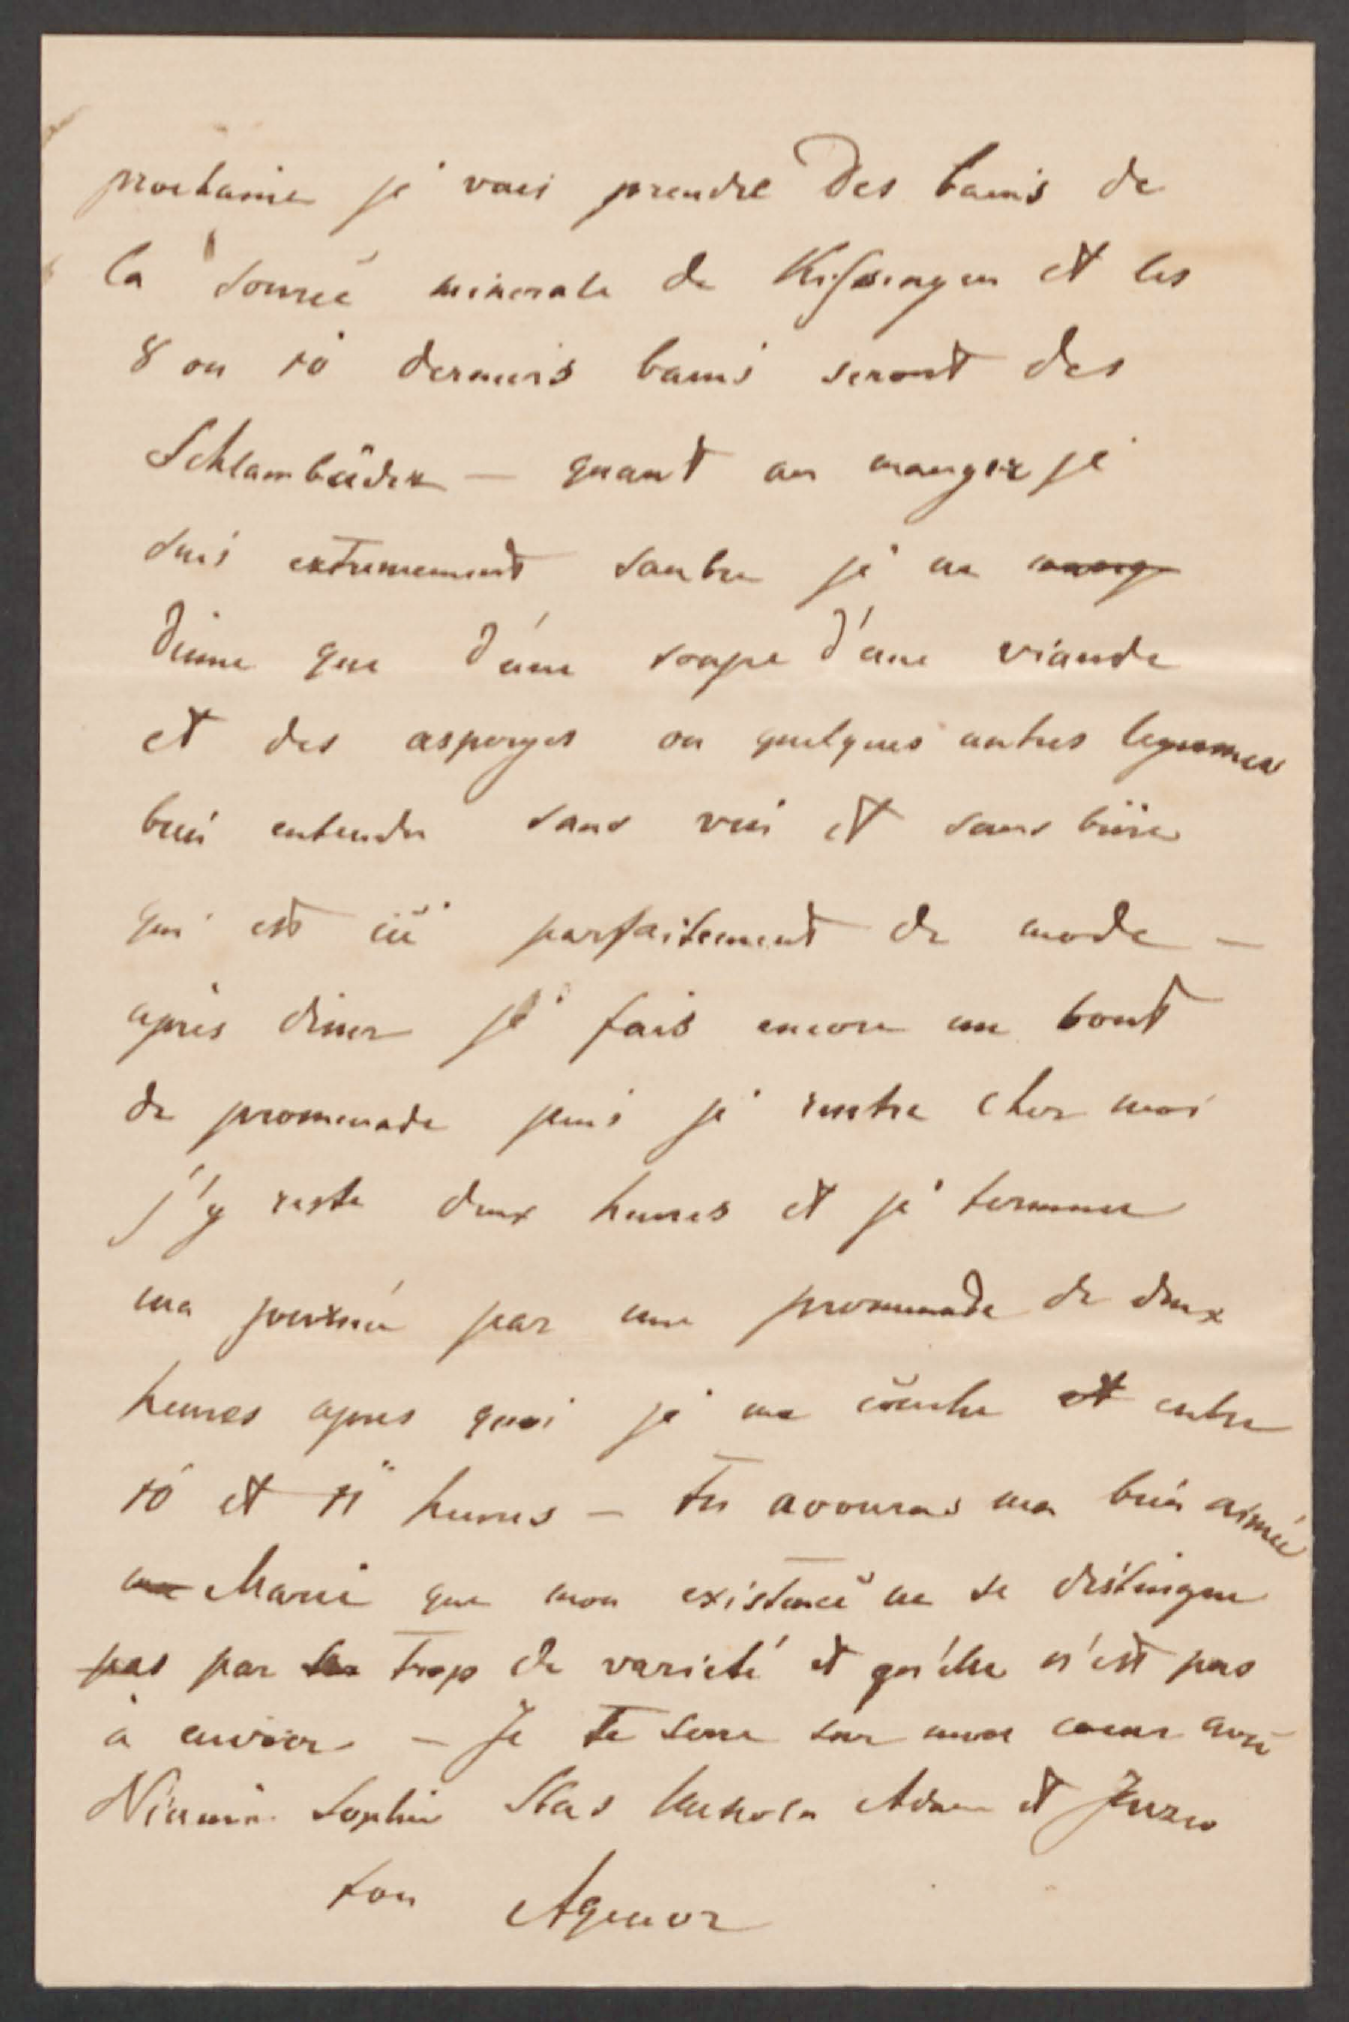 prochaine je vais prendre des bains de
la source minerale de Kissingen et les
8 ou 10 derniers bains seront des
Schlambäder — quant au manger je
suis extremement sobre je ne mang
dine que d'une soupe d'une viande
et des asperges ou quelques autres legumes
bien entendu sans vin et sans bière
qui est ici parfaitement de mode —
après diner je fais encore un bout
de promenade puis je rentre chez moi
j'y reste deux heures et je termine
ma journée par une promenade de deux
heures apres quoi je me couche et entre
10 et 11 heures — tu avoueras ma bien aimée
ma Marie que mon existence ne se distingue
pas par trop de varieté et qu'elle n'est pas
à envier — Je te serre sur mon coeur avec
Niunia Sophie Stas Adam et Juzio
ton Agenor